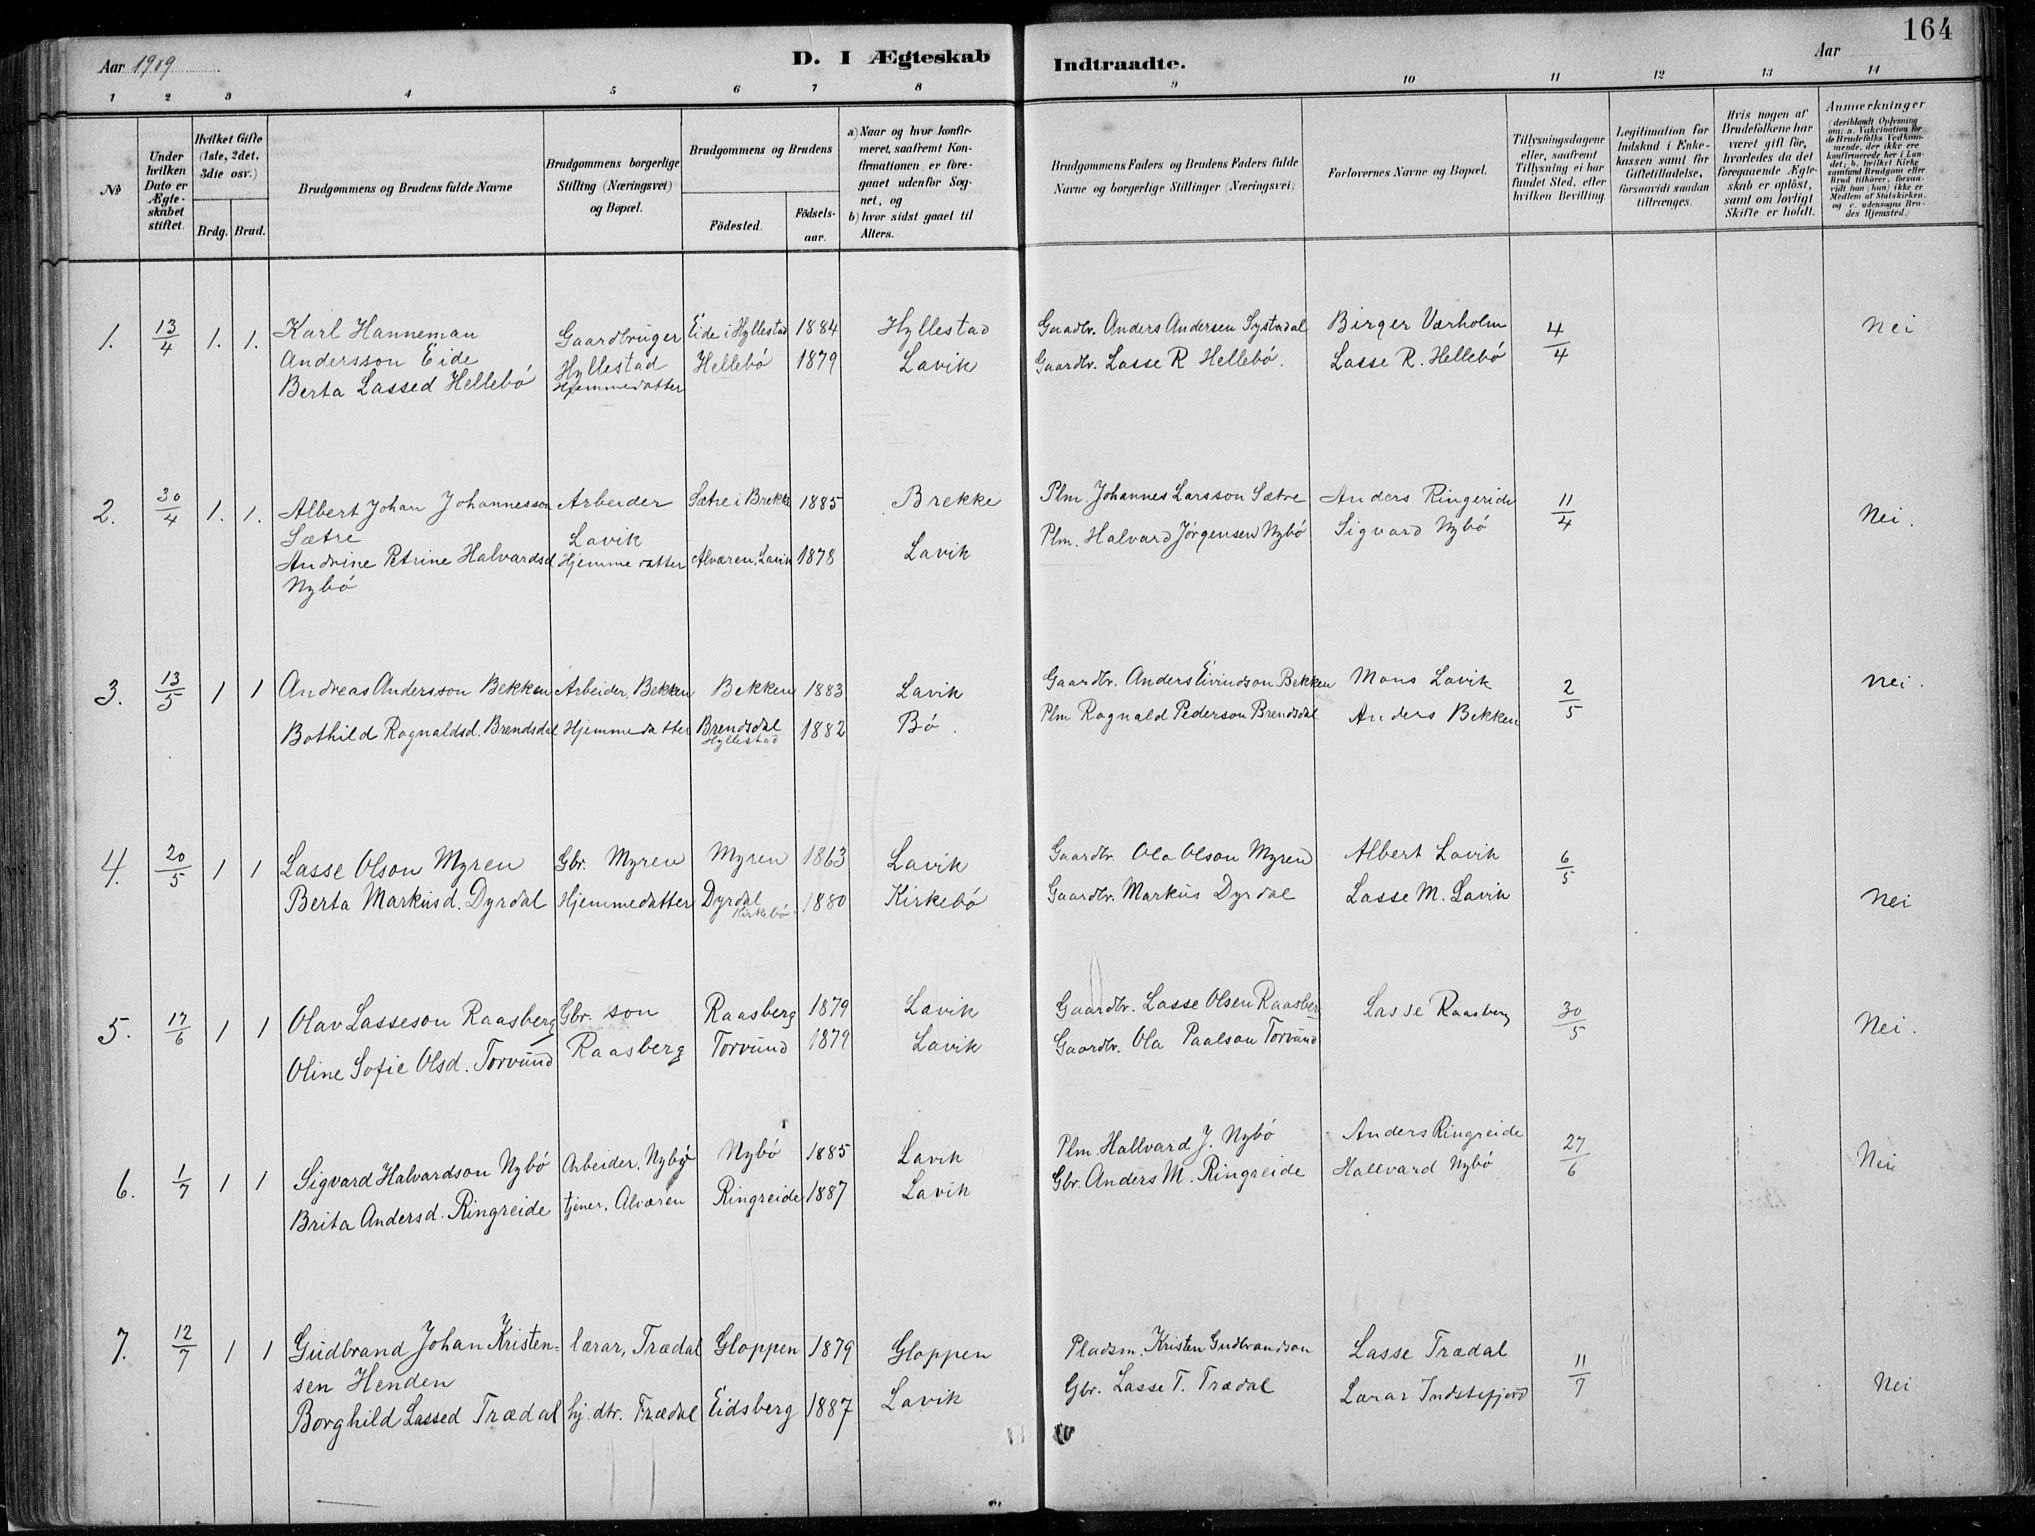 164
Aar 1909
D. I Ægteskab
Indtraadte.
Aar
1 2 3 4 5 6 7 8 9 10 11 12 13 14
№
Under hvilken Dato er Ægteskabet stiftet.
Hvilket Gifte (1ste, 2det, 3dte osv.)
Brdg. Brud.
Brudgommens og Brudens fulde Navne
Brudgommens borgerlige Stilling (Næringsvei) og Bopæl.
Brudgommens og Brudens
Födested.
Födselsaar.
a) Naar og hvor konfirmeret, saafremt Konfirmationen er foregaaet udenfor Sognet, og
b) hvor sidst gaaet til Alters.
Brudgommens Faders og Brudens Faders fulde Navne og borgerlige Stillinger (Næringsvei)
Forlovernes Navne og Bopæl.
Tillysningsdagene eller, saafremt Tillysning ei har fundet Sted, efter hvilken Bevilling.
Legitimation for Indskud i Enkekassen samt for Giftetilladelse, forsaavidt saadan tiltrænges.
Hvis nogen af Brudefolkene har været gift før, hvorledes da det foregaaende Ægteskab er opløst, samt om lovligt Skifte er holdt.
Anmærkninger (deriblandt Oplysning om: a. Vakcination for de Brudefolks Vedkommende, der ikke ere konfirmerede her i Landet; b. hvilket Kirkesamfund Brudgom eller Brud tilhører, forsaavidt han (hun) ikke er Medlem af Statskirken, og c. udensogns Brudes Hjemsted.)
1. 13/4 1. 1. Karl Hanneman Gaardbruger Eide i Hyllestad 1884 Hyllestad Gaardbr. Anders Andersen Systadal Birger Værholm 4/4 Nei
Andersson Eide Hyllestad Hellebö 1879 Lavik Gaardbr. Lasse R Hellebö. Lasse R. Hellebö
Berta Lassed Hellebö Hjemmedatter
2. 30/4 1. 1. Albert Johan Johannesson Arbeider Sætre i Brekke 1885 Brekke Plm. Johannes Larsson Sætre Anders Ringereide 11/4 Nei.
Sætre Lavik Plm. Halvard Jørgensen Nybö Sigvard Nybö
Andrine Petrine Halvardsd Hjemmedatter Alværen, Lavik 1878 Lavik
Nybö
3. 13/5 1 1 Andreas Andersson Bekken Arbeider, Bekken Bekken 1883 Lavik Gaardbr. Anders Eivindson Bekken Mons Lavik 2/5 Nei.
Bothild Ragnaldsd. Brendsdal Hjemmedatter Brendsdal 1882 Bö. Plm Ragnald Pederson Brendsdal Anders Bekken
Hyllestad
4. 20/5 1 1 Lasse Olson Myren Gbr. Myren Myren 1863 Lavik Gaardbr. Ola Olson Myren Albert Lavik 6/5
Berta Markusd. Dyrdal Hjemmedatter Dyrdal 1880 Kirkebö Gaardbr. Markus Dyrdal Lasse M. Lavik Nei
Kirkebö
5. 17/6 1 1 Olav Lasseson Raasberg Gbr. son Raasberg 1879 Lavik Gaardbr. Lasse Olsen Raasberg Lasse Raasberg 30/5 Nei.
Oline Sofie Olsd. Torvund Raasberg Torvund 1879 Lavik Gaardbr. Ola Paalson Torvund
6. 1/7 1 1 Sigvard Halvardson Nybö Arbeider, Nybö Nybö 1885 Lavik Plm. Hallvard J. Nybö Anders Ringreide 27/6 Nei
Brita Andersd. Ringreide tjener, Alværen Ringreide 1887 Lavik Gbr. Anders M. Ringreide Hallvard Nybö
7. 12/7 1 1 Gudbrand Johan Kristen- lærar, Trædal Gloppen 1879 Gloppen Pladsm. Kristen Gudbrandson Lasse Trædal 11/7 Nei
sen Henden
Borghild Lassed Trædal hj. dtr. Trædal Eidsberg 1887 Lavik Gbr. Lasse T. Trædal Lærar Indstefjord